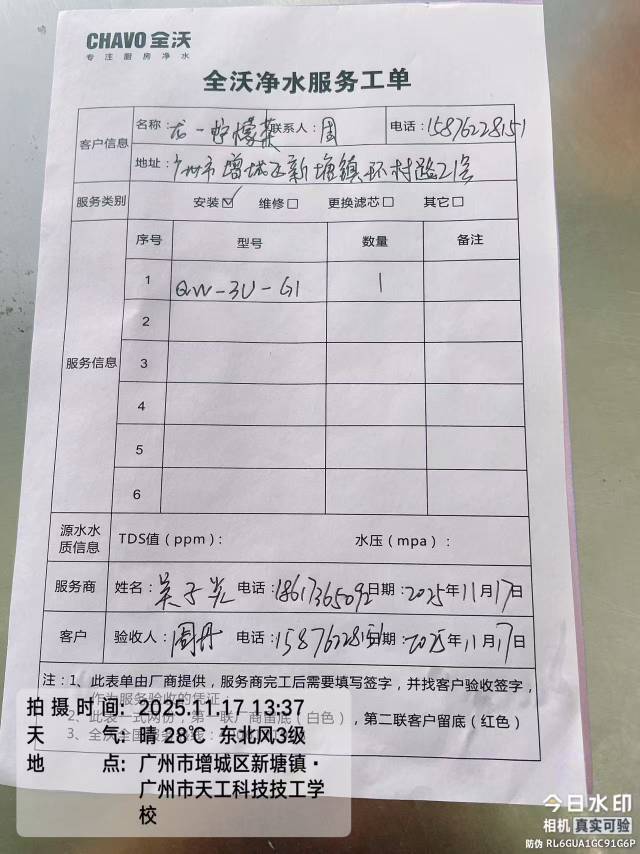 CHAVO 全沃
专注厨房净水
全沃净水服务工单
客户信息
名称：龙一柠檬茶 联系人：周 电话：15876228151
地址：广州市增城区新塘镇环村路21号
服务类别 安装☑ 维修□ 更换滤芯□ 其它□
服务信息
序号 型号 数量 备注
1 QW-3U-G1 1
2
3
4
5
6
源水水质信息 TDS值（ppm）： 水压（mpa）：
服务商 姓名： 电话：18617365092 日期：2025年11月17日
客户 验收人：周丹 电话：15876228151 日期：2025年11月17日
注：1、此表单由厂商提供，服务商完工后需要填写签字，并找客户验收签字，
作为服务验收的凭证
2、此表一式两份，第一联厂商留底（白色），第二联客户留底（红色）
3、全沃全国
拍摄时间：2025.11.17 13:37
天气：晴 28℃ 东北风3级
地点：广州市增城区新塘镇·
广州市天工科技技工学
校
今日水印
相机 真实可验
防伪 RL6GUA1GC91G6P